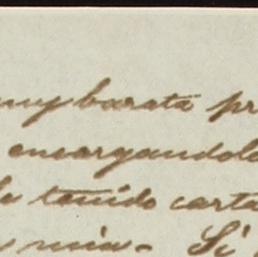 muy barata pr
encargandolo
le tenido carta
mia. Si